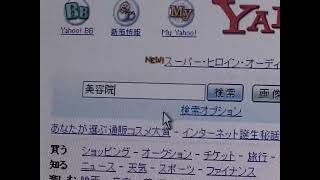 YAH
Yahoo! BB 新着情報 My Yahoo!
NEW! スーパー・ヒロイン・オーデ
美容院 検索 画像
検索オプション
あなたが選ぶ通販コスメ大賞 - インターネット誕生秘話
買う ショッピング - オークション - チケット - 旅行 -
知る ニュース - 天気 - スポーツ - ファイナンス
楽しむ